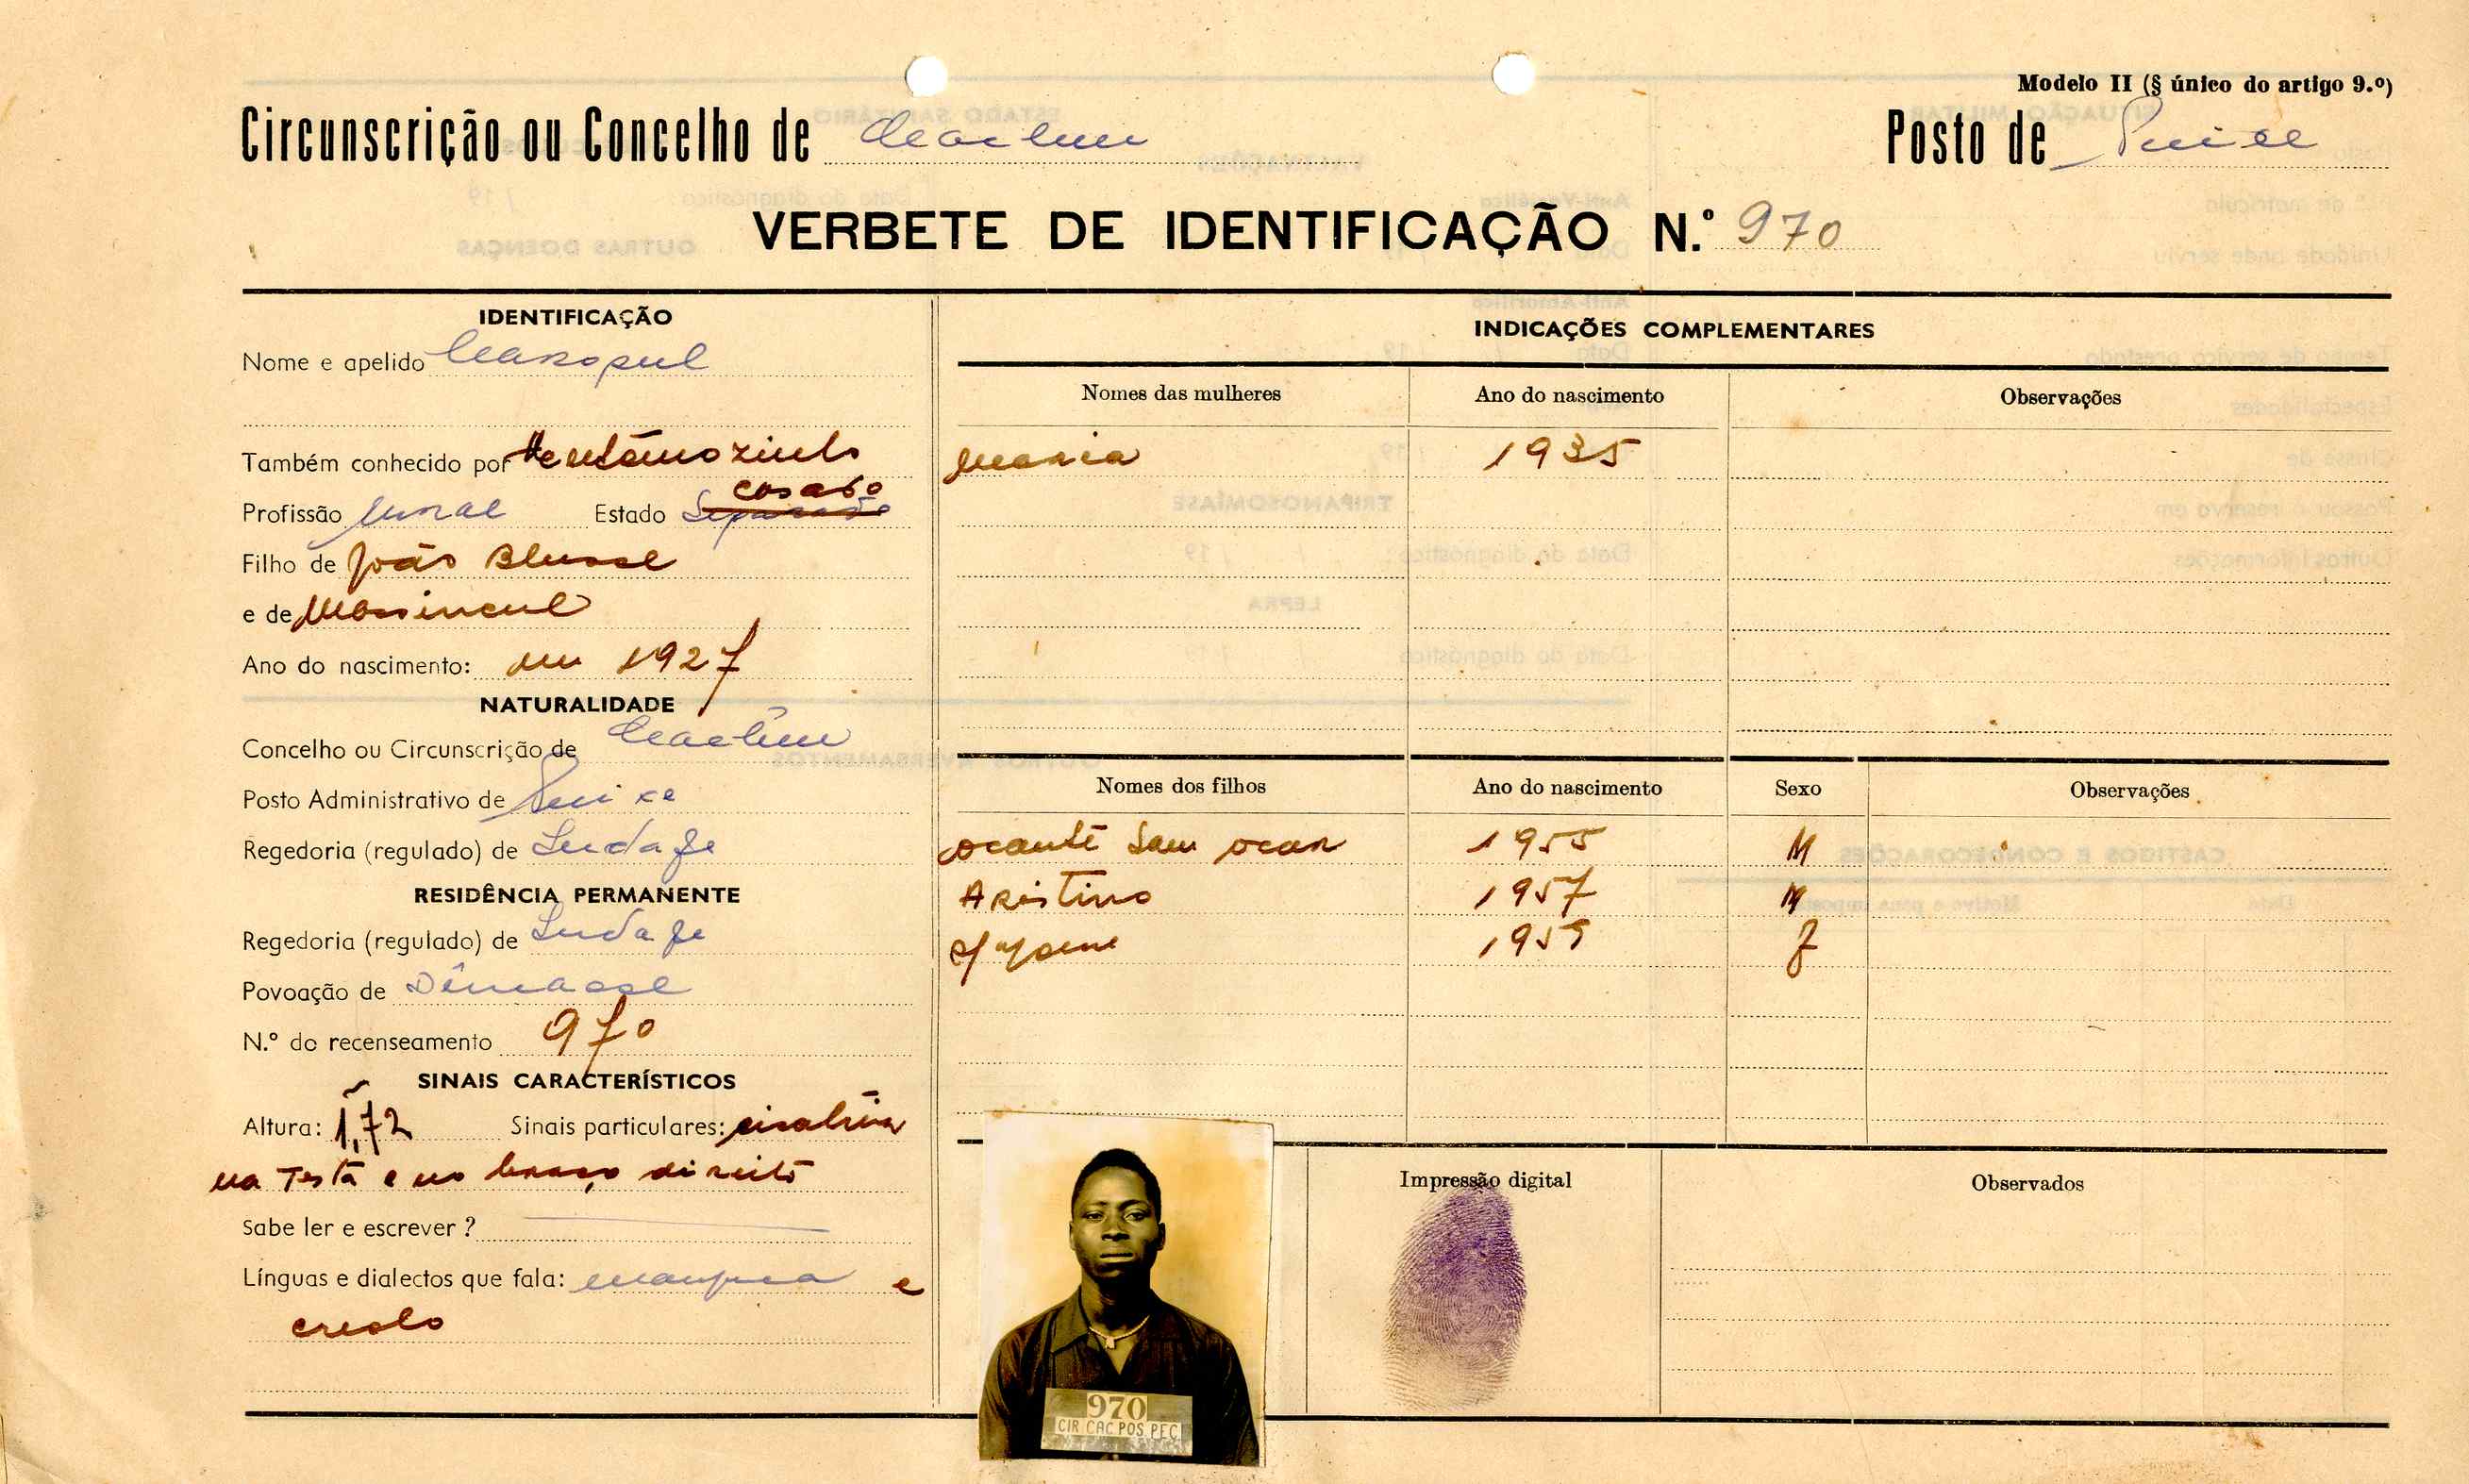 Modelo II (§ único do artigo 9.º)
Circunscrição ou Concelho de Cacheu
Posto de
VERBETE DE IDENTIFICAÇÃO N.º 970
IDENTIFICAÇÃO
Nome e apelido
Também conhecido por
Profissão rural Estado Separado casado
Filho de João
e de
Ano do nascimento: em 1927
NATURALIDADE
Concelho ou Circunscrição de Cacheu
Posto Administrativo de
Regedoria (regulado) de
RESIDÊNCIA PERMANENTE
Regedoria (regulado) de
Povoação de
N.º do recenseamento 970
SINAIS CARACTERÍSTICOS
Altura: 1,72 Sinais particulares:
na testa e no braço direito
Sabe ler e escrever ?
Línguas e dialectos que fala: e
creolo
INDICAÇÕES COMPLEMENTARES
Nomes das mulheres Ano do nascimento Observações
Maria 1935
Nomes dos filhos Ano do nascimento Sexo Observações
1955 M
Aristino 1957 M
1959 F
Impressão digital
Observados
970
CIR CAC POS PEC